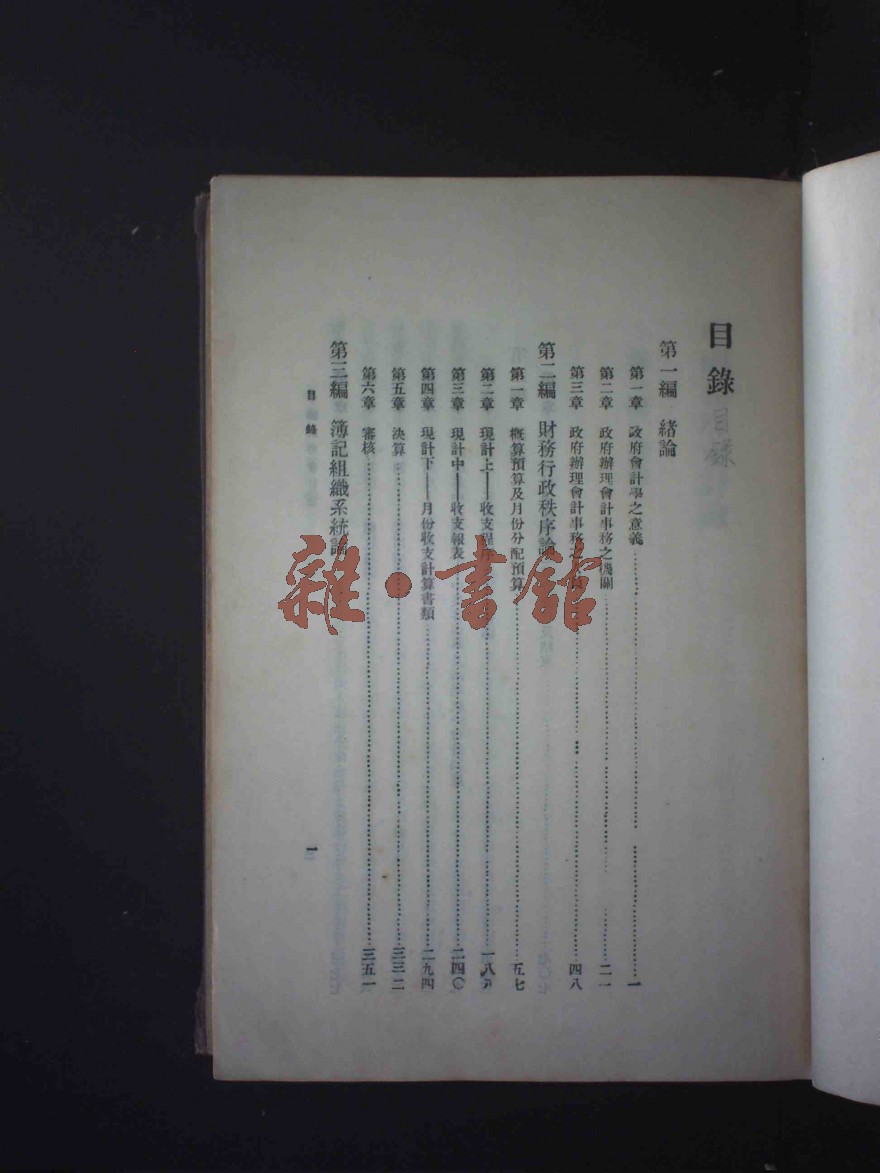 目錄
第一編 緒論
第一章 政府會計學之意義……一
第二章 政府辦理會計事務之機關……二一
第三章 政府辦理會計事務之……四八
第二編 財務行政秩序論
第一章 概算預算及月份分配預算……五七
第二章 現計上——收支程序……一八九
第三章 現計中——收支報表……二四〇
第四章 現計下——月份收支計算書類……二九四
第五章 決算……三三二
第六章 審核……三五一
第三編 簿記組織系統論
目錄
一
雜·書館